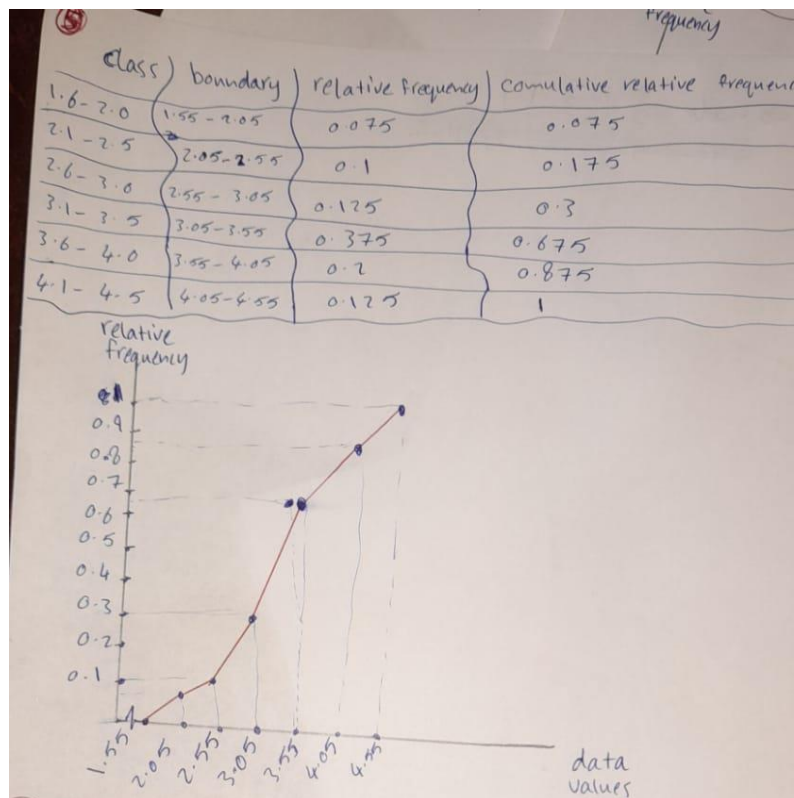 frequency
5
class boundary relative frequency comulative relative frequenc
1.6-2.0 1.55-2.05 0.075 0.075
2.1-2.5 2.05-2.55 0.1 0.175
2.6-3.0 2.55-3.05 0.125 0.3
3.1-3.5 3.05-3.55 0.375 0.675
3.6-4.0 3.55-4.05 0.2 0.875
4.1-4.5 4.05-4.55 0.125 1
relative
frequency
1
0.9
0.8
0.7
0.6
0.5
0.4
0.3
0.2
0.1
1.55 2.05 2.55 3.05 3.55 4.05 4.55
data
values